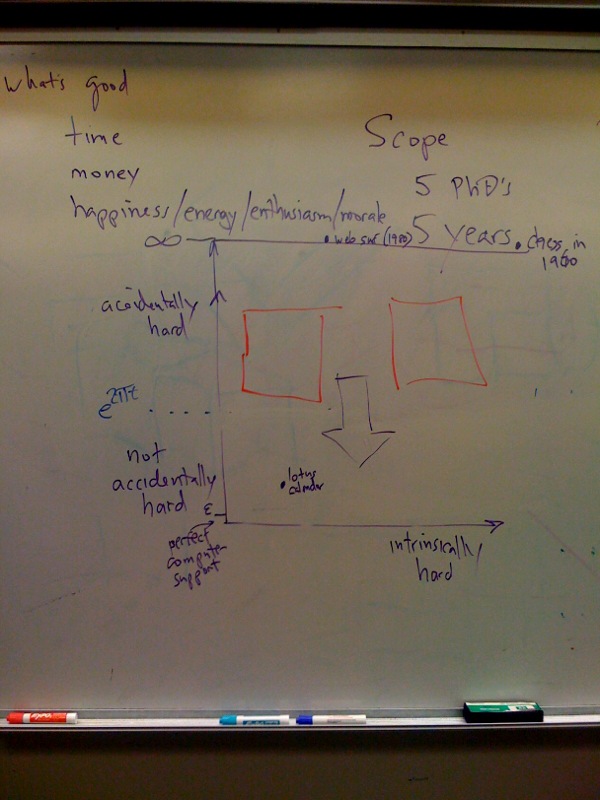 what's good
time
money
happiness/energy/enthusiasm/morale
Scope
5 PhD's
5 years
∞
web surf (1980)
chess in
1960
accidentally
hard
not
accidentally
hard
ε
perfect
computer
support
lotus
calendar
intrinsically
hard